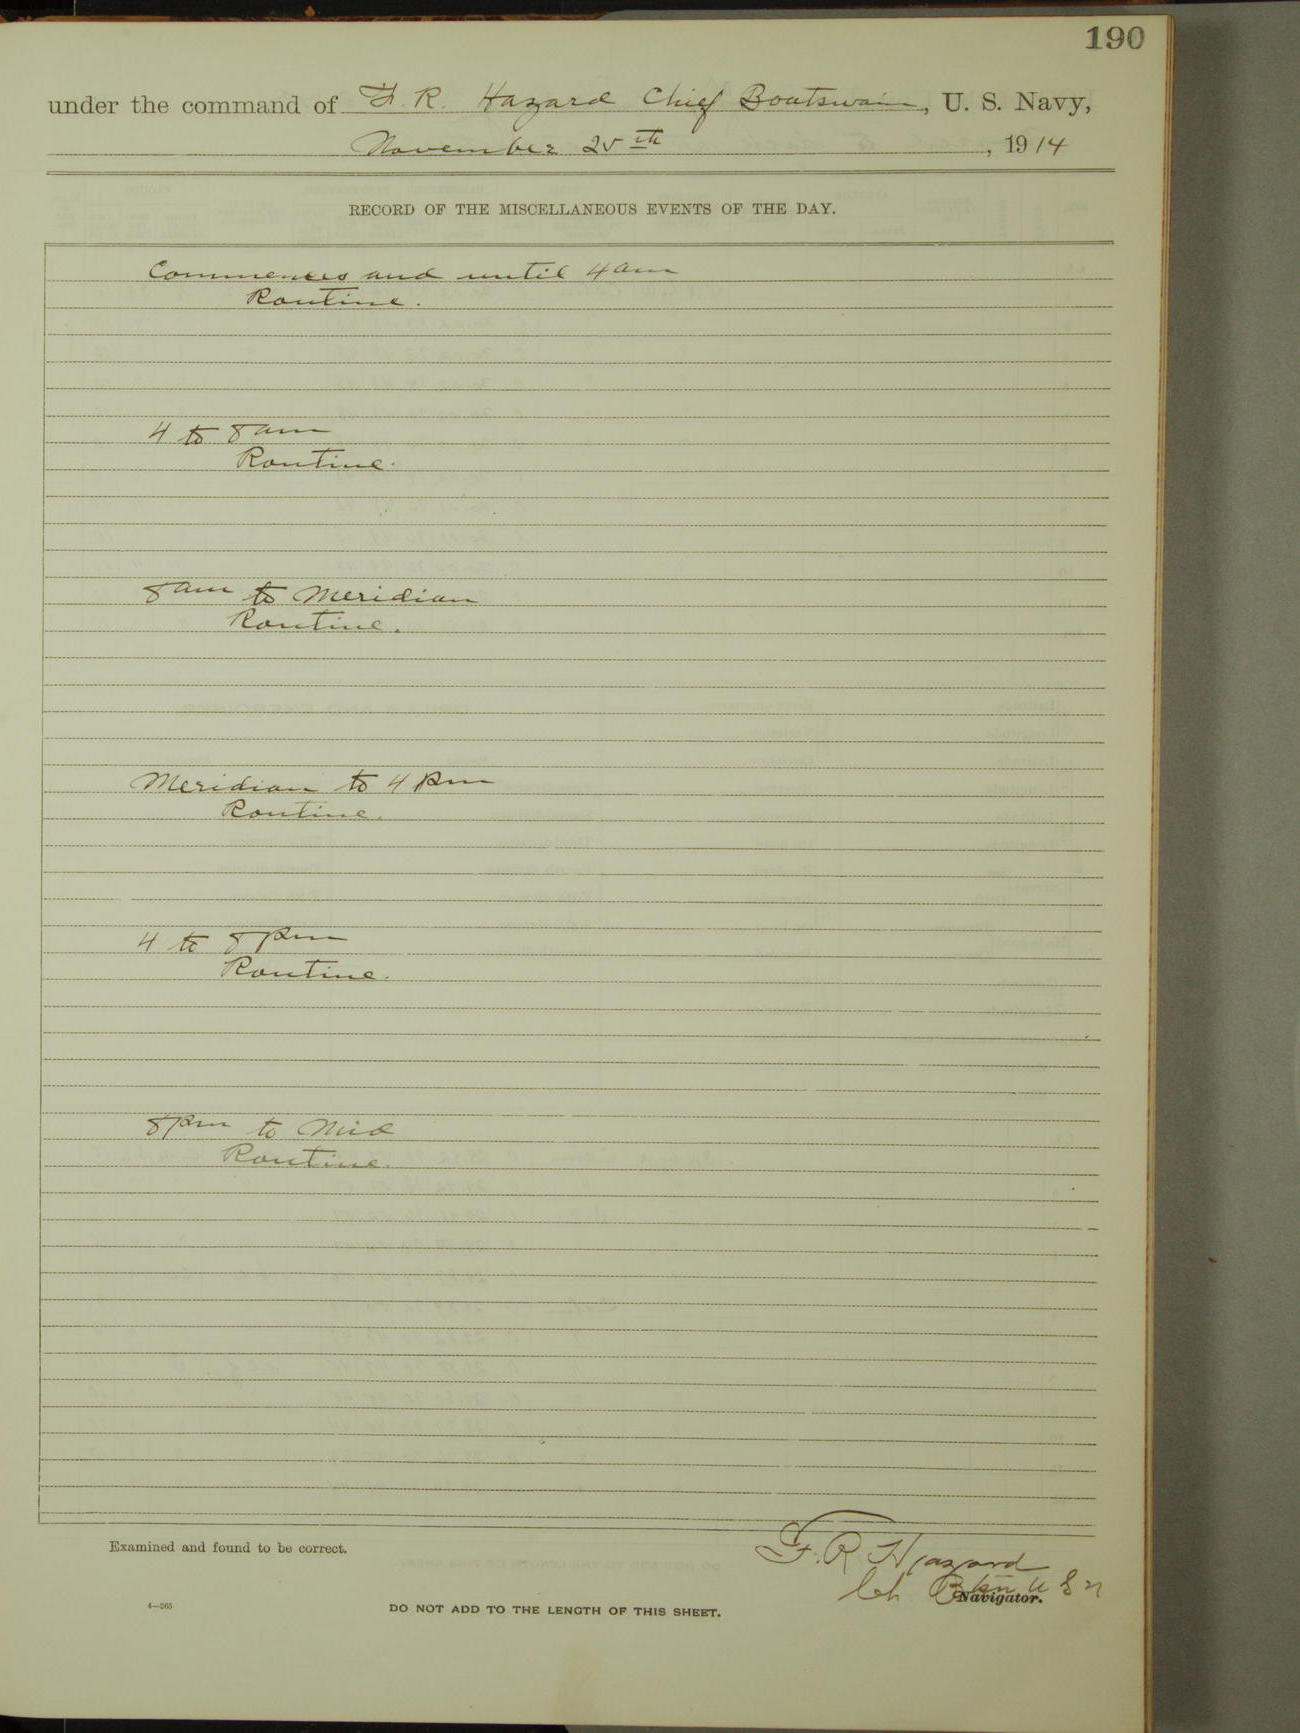 190
under the command of F. R. Hazard Chief Boatswain, U. S. Navy,
November 25th, 1914
RECORD OF THE MISCELLANEOUS EVENTS OF THE DAY.
Commences and until 4 am
Routine.
4 to 8 am
Routine.
8 am to Meridian
Routine.
Meridian to 4 pm
Routine.
4 to 8 pm
Routine.
8 pm to Mid
Routine.
Examined and found to be correct.
F. R. Hazard
Ch. Btsn U S N
Navigator.
4—265
DO NOT ADD TO THE LENGTH OF THIS SHEET.